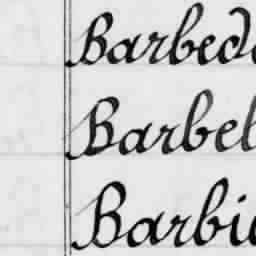 Barbed
Barbel
Barbi